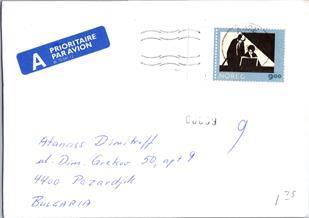 A PRIORITAIRE
PAR AVION
NOREG 9.00
00009
9
Atanass Dimitroff
ul. Dim. Grekov 50, apt 9
4400 Pazardjik
BULGARIA
1 25